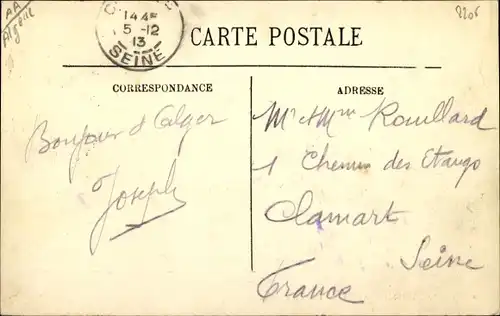 AA
Algérie
2205
14 45
5 -12
13
SEINE
CARTE POSTALE
CORRESPONDANCE
ADRESSE
Bonjour d'Alger
Joseph
Mr et Mme Rouillard
1 Chemin des Etangs
Clamart
Seine
France